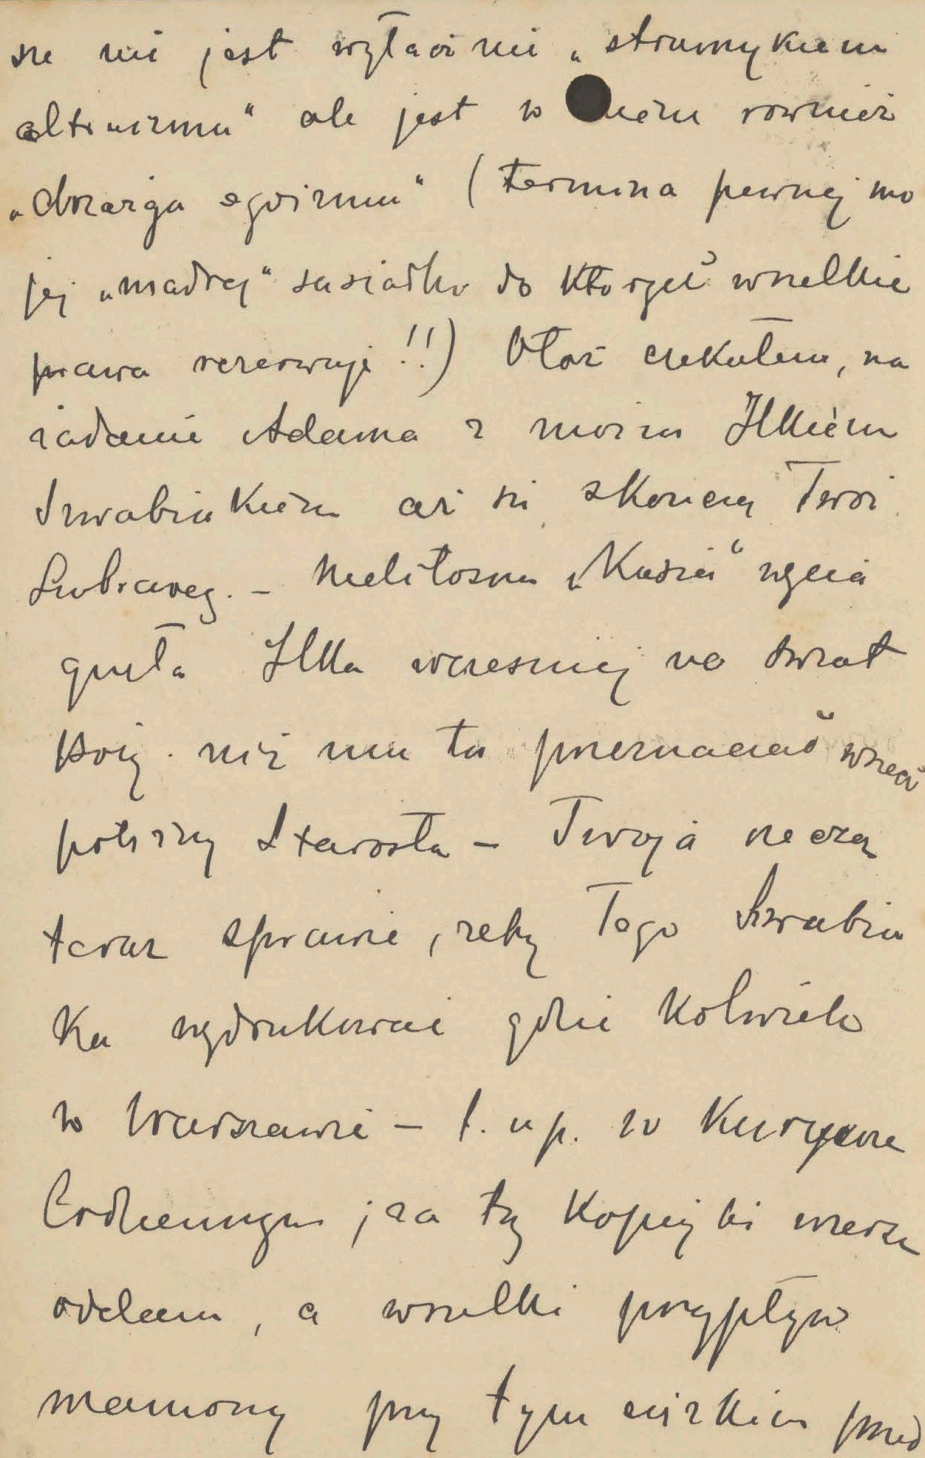 że nie jest wyłącznie „strumykiem
altruizmu" ale jest w niem również
„drzazga egoizmu" (termina pewnej mo
jej „mądrej" sąsiadki do której wszelkie
prawa rezerwuję!!) Otóż czekałem, na
żądanie Adama z moim Ilkiem
Szwabiukiem aż się skończy Twój
. – Nielitosna „Kuzia" wycią
gnęła Ilka wcześniej na świat
Boży. niż mu to przeznaczał wszech
potężny Starosta – Twoją rzeczą
teraz sprawić, żeby Tego Szwabiu
ka wydrukować gdzie kolwiek
w Warszawie – t. np. w Kuryerze
Codziennym, za trzy kopiejki wiersz
oddam, a wszelki przypływ
mamony przy tym ciężkim przed